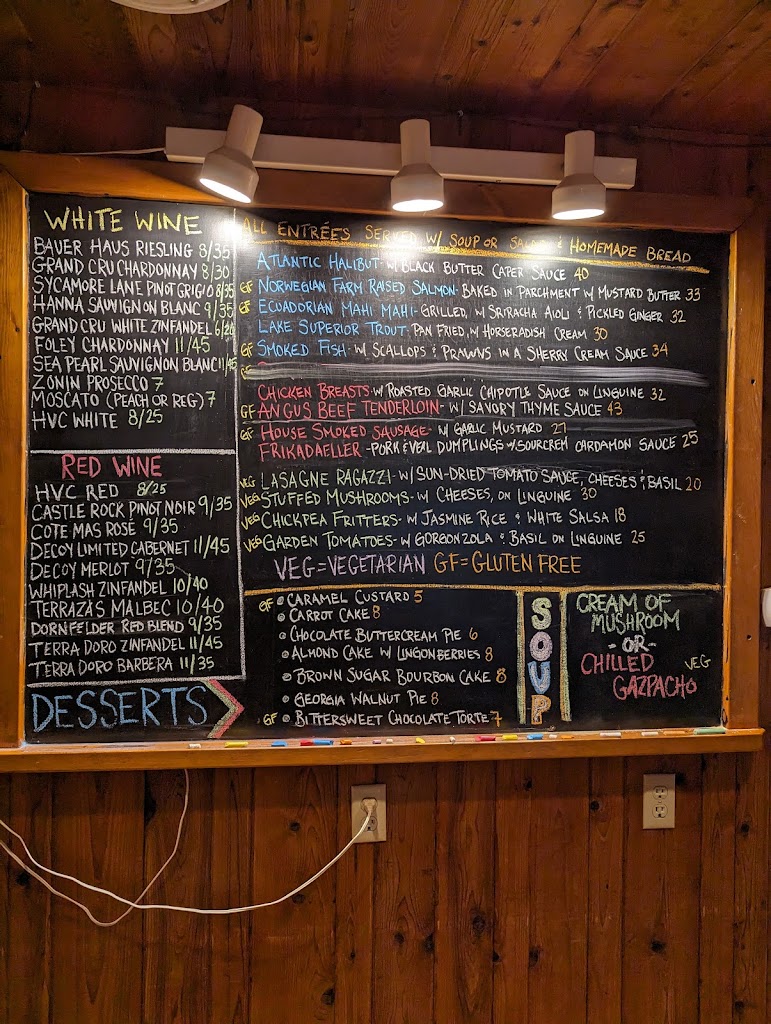 WHITE WINE
BAUER HAUS RIESLING 8/35
GRAND CRU CHARDONNAY 8/30
SYCAMORE LANE PINOT GRIGIO 8/35
HANNA SAUVIGNON BLANC 9/35
GRAND CRU WHITE ZINFANDEL 6/20
FOLEY CHARDONNAY 11/45
SEA PEARL SAUVIGNON BLANC 11/45
ZONIN PROSECCO 7
MOSCATO (PEACH OR REG) 7
HVC WHITE 8/25
RED WINE
HVC RED 8/25
CASTLE ROCK PINOT NOIR 9/35
COTE MAS ROSÉ 9/35
DECOY LIMITED CABERNET 11/45
DECOY MERLOT 9/35
WHIPLASH ZINFANDEL 10/40
TERRAZAS MALBEC 10/40
DORNFELDER RED BLEND 9/35
TERRA DORO ZINFANDEL 11/45
TERRA DORO BARBERA 11/35
DESSERTS
ALL ENTRÉES SERVED W/ SOUP OR SALAD & HOMEMADE BREAD
ATLANTIC HALIBUT - W/ BLACK BUTTER CAPER SAUCE 40
GF NORWEGIAN FARM RAISED SALMON - BAKED IN PARCHMENT W/ MUSTARD BUTTER 33
GF ECUADORIAN MAHI MAHI - GRILLED, W/ SRIRACHA AIOLI & PICKLED GINGER 32
LAKE SUPERIOR TROUT - PAN FRIED, W/ HORSERADISH CREAM 30
GF SMOKED FISH - W/ SCALLOPS & PRAWNS IN A SHERRY CREAM SAUCE 34
CHICKEN BREASTS - W/ ROASTED GARLIC CHIPOTLE SAUCE ON LINGUINE 32
GF ANGUS BEEF TENDERLOIN - W/ SAVORY THYME SAUCE 43
GF HOUSE SMOKED SAUSAGE - W/ GARLIC MUSTARD 27
FRIKADAELLER - PORK & VEAL DUMPLINGS W/ SOURCREM CARDAMON SAUCE 25
VEG LASAGNE RAGAZZI - W/ SUN-DRIED TOMATO SAUCE, CHEESES & BASIL 20
VEG STUFFED MUSHROOMS - W/ CHEESES, ON LINGUINE 30
VEG CHICKPEA FRITTERS - W/ JASMINE RICE & WHITE SALSA 18
VEG GARDEN TOMATOES - W/ GORGONZOLA & BASIL ON LINGUINE 25
VEG=VEGETARIAN GF=GLUTEN FREE
GF CARAMEL CUSTARD 5
CARROT CAKE 8
CHOCOLATE BUTTERCREAM PIE 6
ALMOND CAKE W/ LINGONBERRIES 8
BROWN SUGAR BOURBON CAKE 8
GEORGIA WALNUT PIE 8
GF BITTERSWEET CHOCOLATE TORTE 7
SOUP
CREAM OF
MUSHROOM
-OR-
CHILLED VEG
GAZPACHO